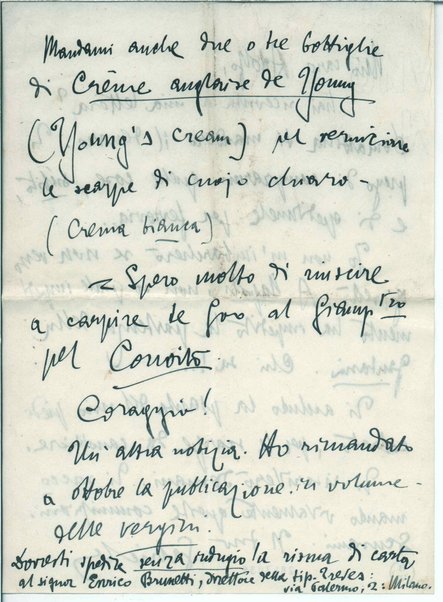 Mandami anche due o tre bottiglie
di Crême anglaise de Young
(Young's cream) pel verniciare
le scarpe di cuojo chiaro -
(Crema bianca)
Spero molto di riuscire
a carpire le 500 al
pel Convito.
Coraggio!
Un' altra notizia. Ho rimandato
a ottobre la publicazione in volume
delle vergini.
Dovresti spedire senza indugio la risma di carta
al signor Enrico Brunetti, direttore della tip. Treves:
via Palermo, 2: Milano.